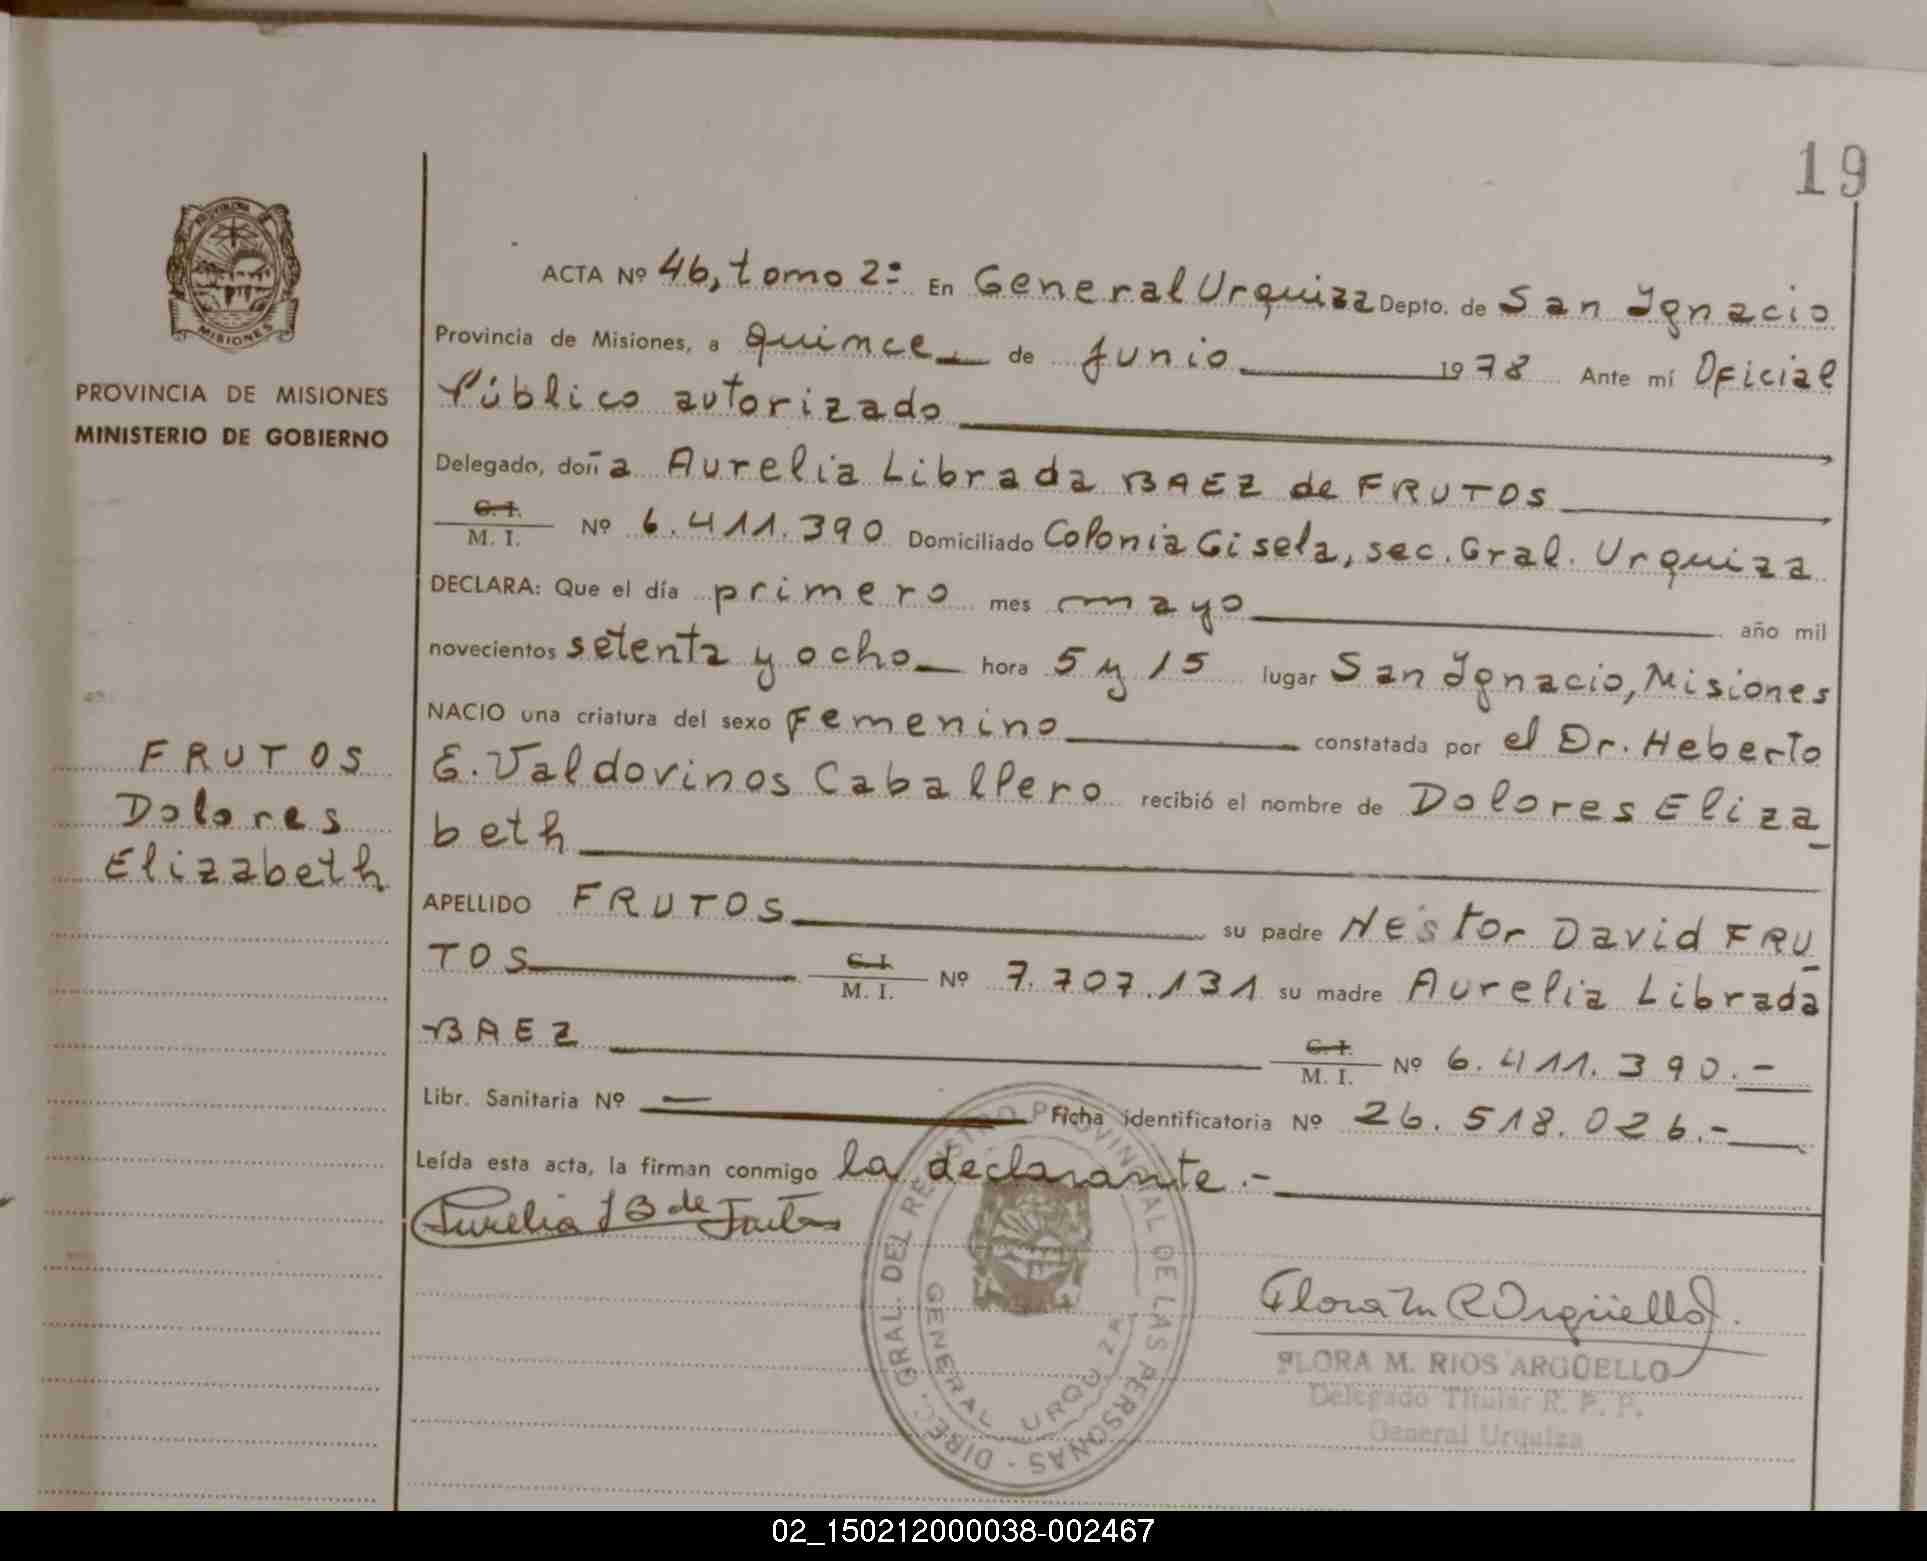 19
PROVINCIA DE MISIONES
MISIONES
PROVINCIA DE MISIONES
MINISTERIO DE GOBIERNO
FRUTOS
Dolores
Elizabeth
ACTA Nº 46, tomo 2º En General Urquiza Depto. de San Ygnacio
Provincia de Misiones, a quince de junio 1978 Ante mí Oficial
Público autorizado
Delegado, doña Aurelia Librada BAEZ de FRUTOS
C. I.
M. I. Nº 6.411.390 Domiciliado Colonia Gisela, sec. Gral. Urquiza
DECLARA: Que el día primero mes mayo año mil
novecientos setenta y ocho hora 5 y 15 lugar San Ygnacio, Misiones
NACIO una criatura del sexo Femenino constatada por el Dr. Heberto
E. Valdovinos Caballero recibió el nombre de Dolores Eliza_
beth
APELLIDO FRUTOS su padre Néstor David FRU_
TOS C. I.
M. I. Nº 7.707.131 su madre Aurelia Librada
BAEZ C. I.
M. I. Nº 6.411.390.-
Libr. Sanitaria Nº — Ficha identificatoria Nº 26.518.026.-
Leída esta acta, la firman conmigo la declarante.-
Aurelia L B de Frutos
DIREC. GRAL. DEL REGISTRO PROVINCIAL DE LAS PERSONAS
GENERAL URQUIZA
Flora M R Argüello
FLORA M. RIOS ARGÜELLO
Delegado Titular R. P. P.
General Urquiza
02_150212000038-002467